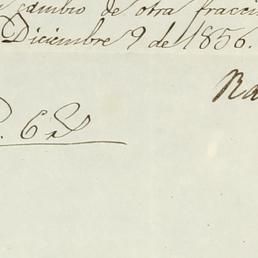 cambio de otra fracci
Diciembre 9 de 1856.
Ra